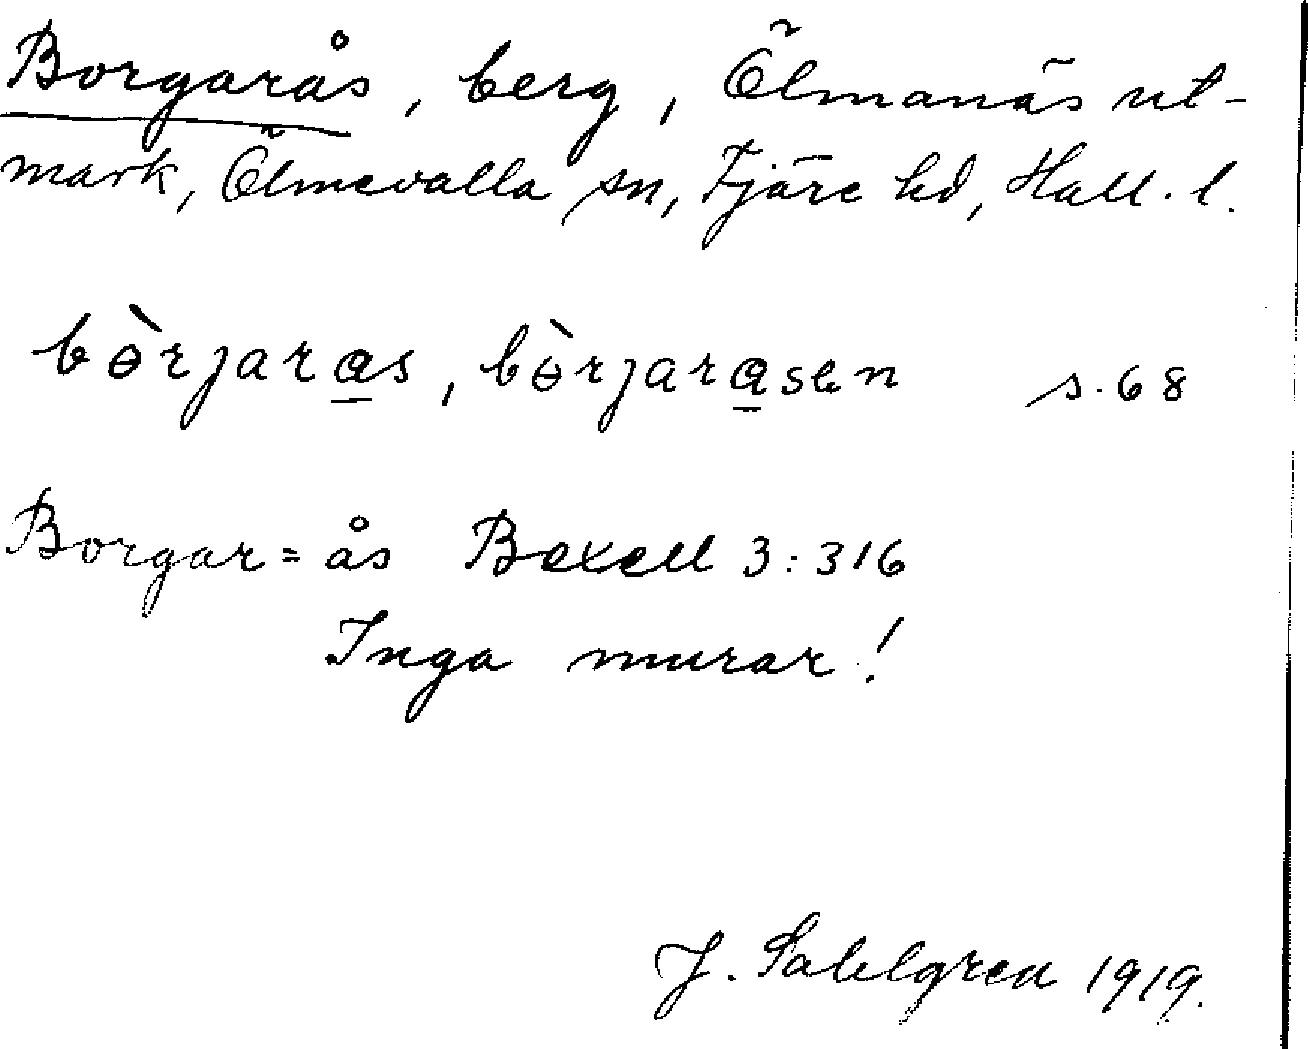 Borgarås, berg, Ölmanäs ut-
mark, Ölmevalla sn, Fjäre hd, Hall. l.
bɵ̀rjara̲s, bɵ̀rjara̲sen s. 68
Borgar=ås Bexell 3:316
Inga murar!
J. Sahlgren 1919.